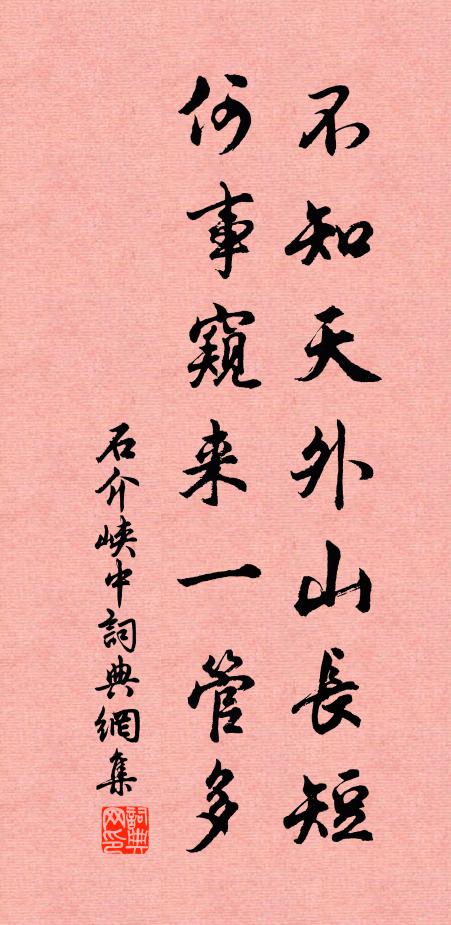 不知天外山長短
何事窺来一管多
石介峡中詞典網集
詞典网印